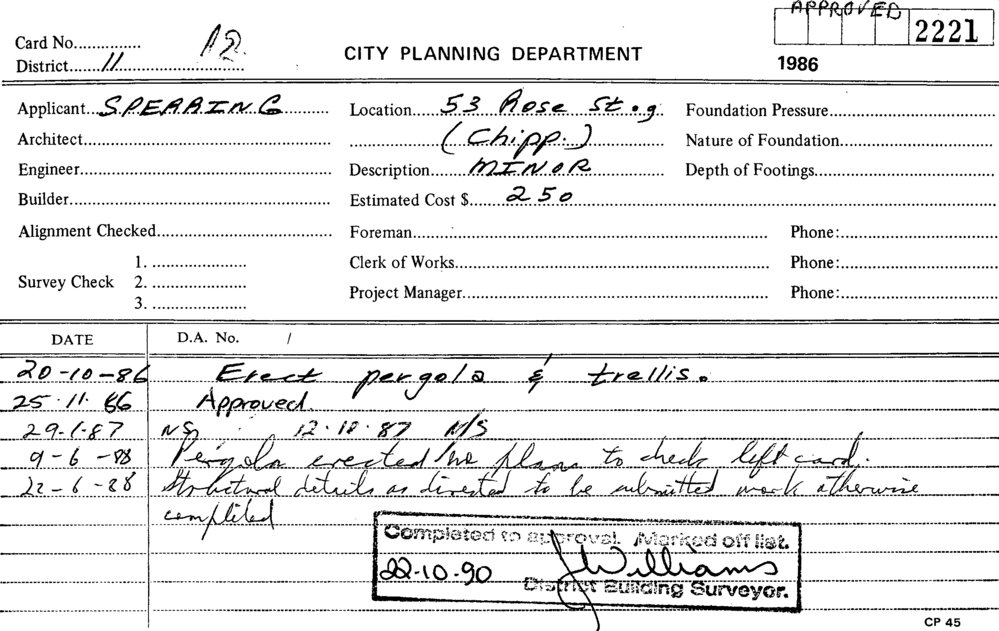 APPROVED
Card No............... A2 2221
CITY PLANNING DEPARTMENT
District.......11.......................... 1986
Applicant...SPERRING............ Location....53 Rose St..g. Foundation Pressure..............................
Architect.............................................. ....................(Chipp.).................... Nature of Foundation............................
Engineer............................................... Description........MINOR.................. Depth of Footings.................................
Builder................................................. Estimated Cost $........250........................
Alignment Checked............................. Foreman.................................................. Phone:............................
1. ......................
Survey Check 2. ...................... Clerk of Works........................................ Phone:............................
3. ...................... Project Manager...................................... Phone:............................
DATE D.A. No. /
20-10-86 Erect pergola & trellis.
25.11.86 Approved.
29.1.87 NS. 12.10.87 N/S
9-6-88 Pergola erected/no plans to check left card.
22-6-88 Structural details as directed to be submitted work otherwise
completed
Completed to approval. Marked off list.
22-10-90 J Williams
District Building Surveyor.
CP 45